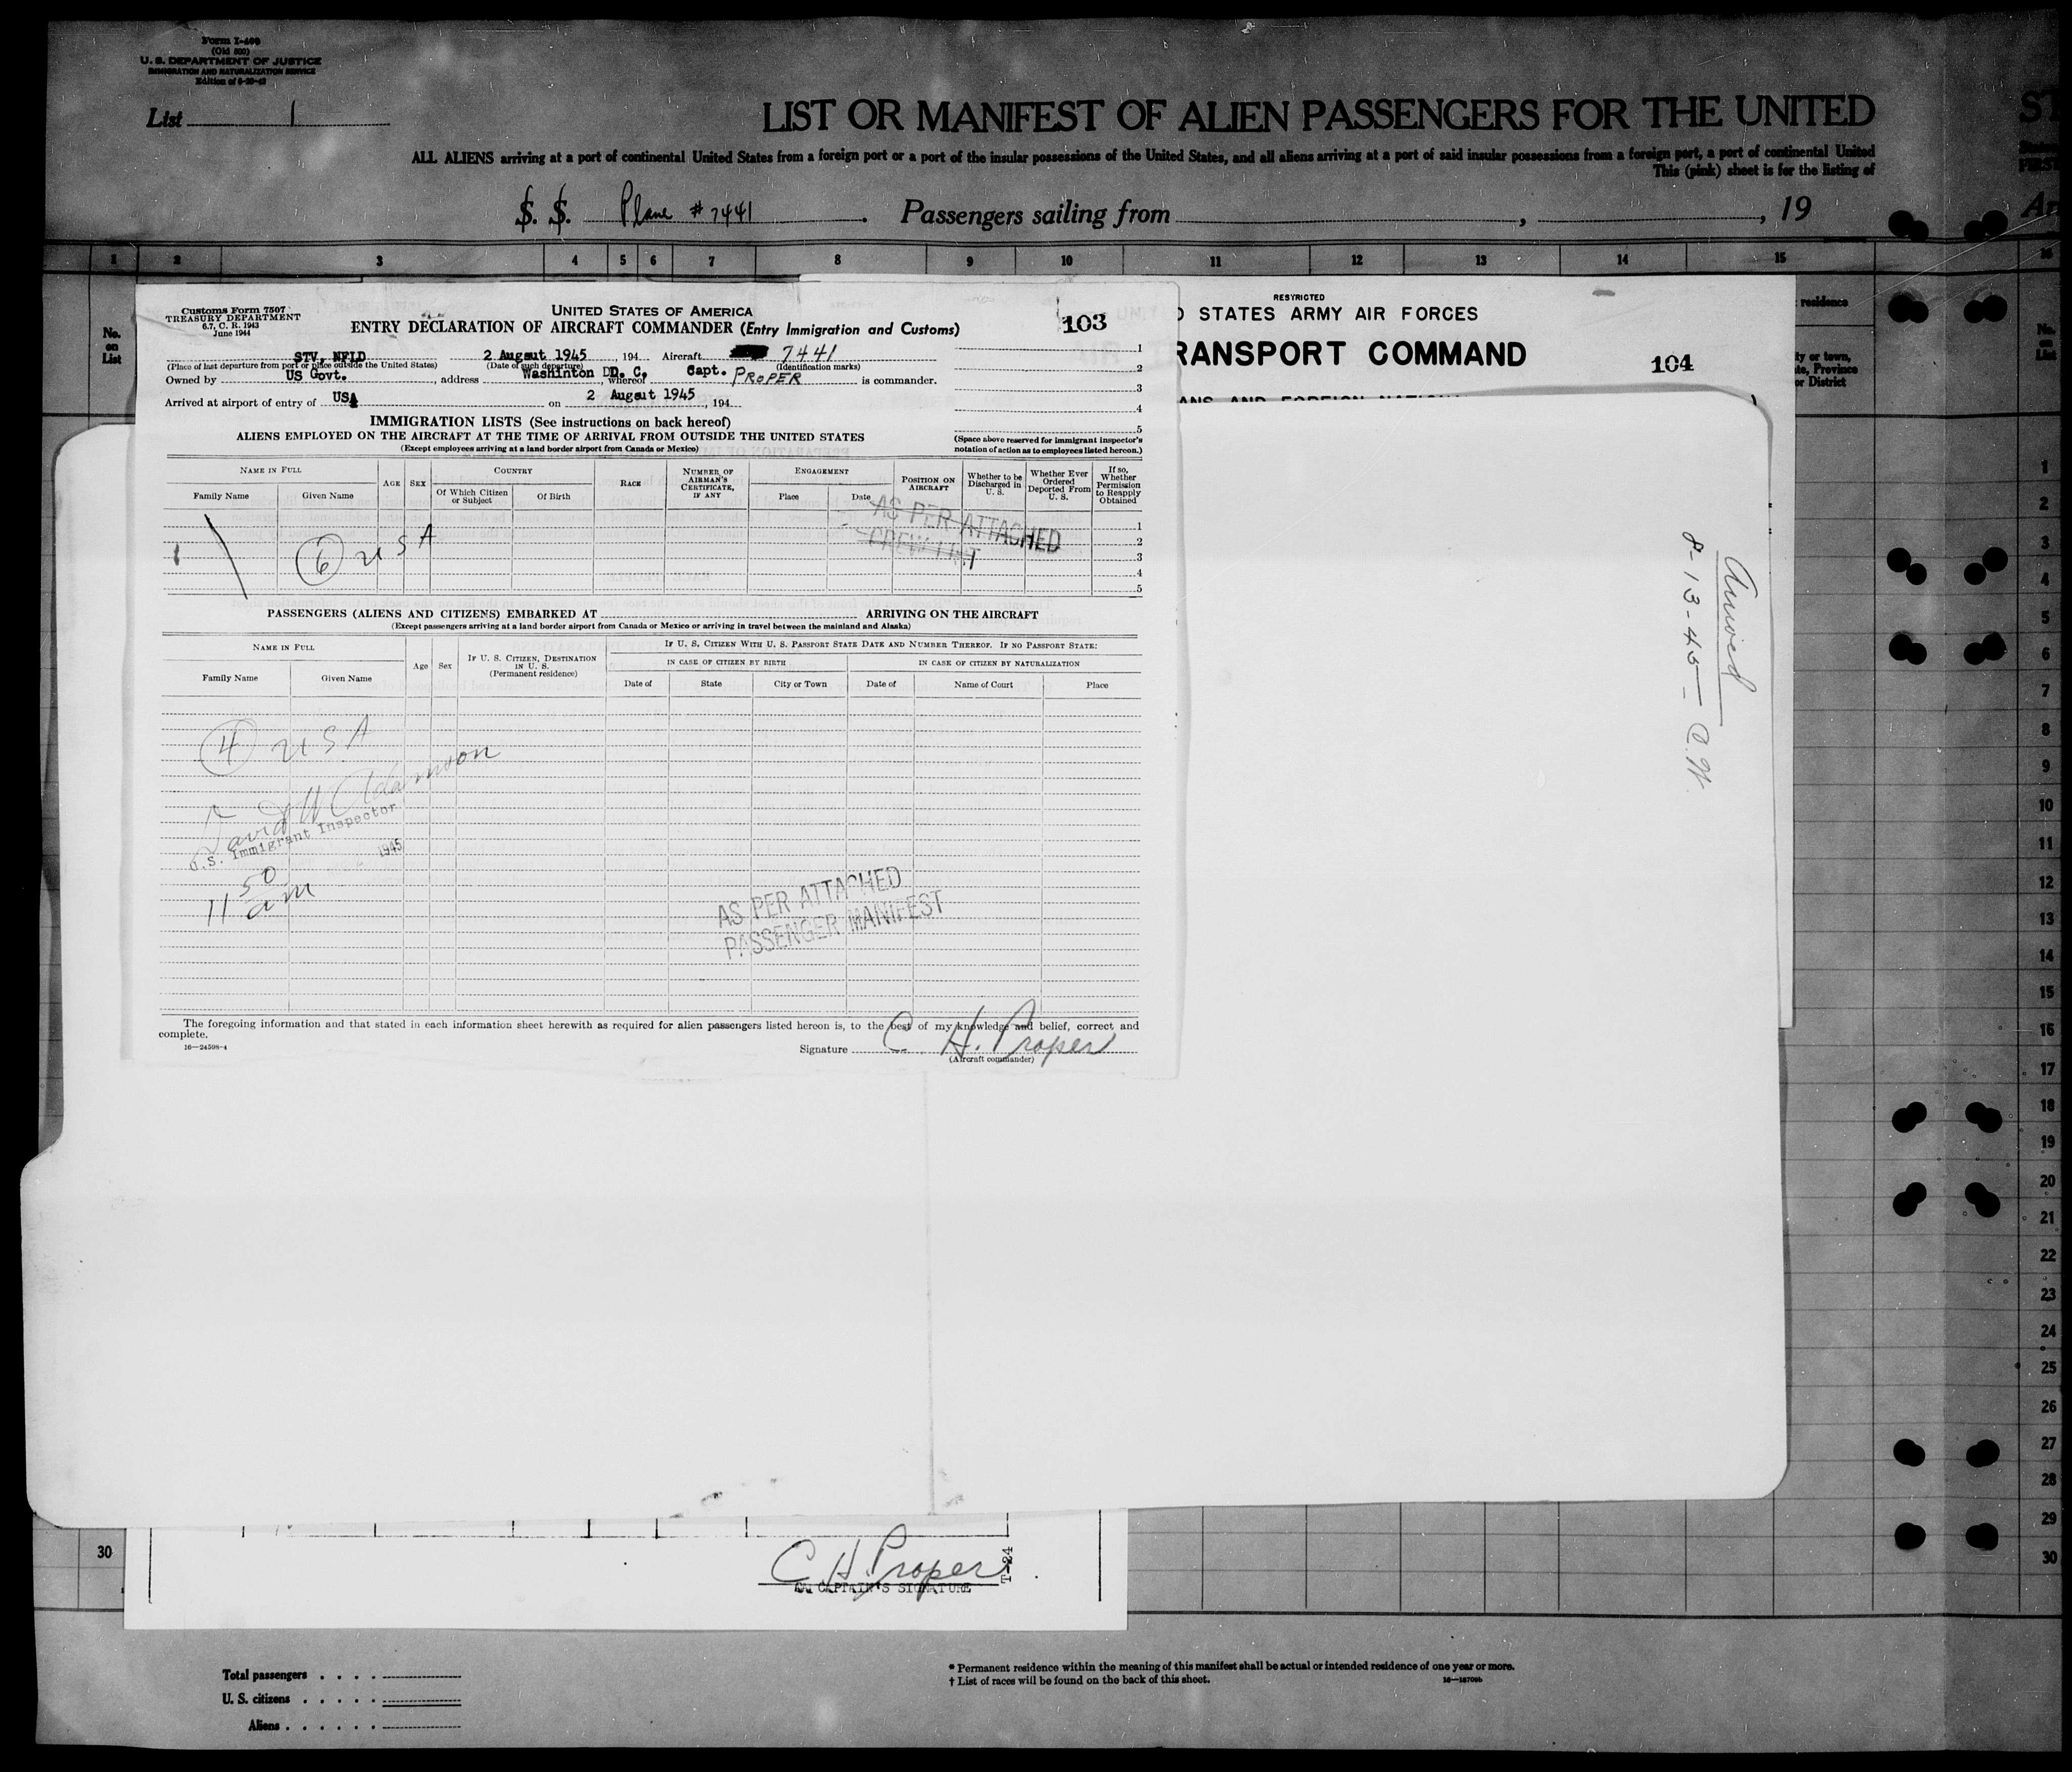 Form I-400
(Old 500)
U. S. DEPARTMENT OF JUSTICE
IMMIGRATION AND NATURALIZATION SERVICE
List 1
LIST OR MANIFEST OF ALIEN PASSENGERS FOR THE UNITED
ST
ALL ALIENS arriving at a port of continental United States from a foreign port or a port of the insular possessions of the United States, and all aliens arriving at a port of said insular possessions from a foreign port, a port of continental United
This (pink) sheet is for the listing of
S. S. Plane # 7441. Passengers sailing from , , 19
Ar
1 2 3 4 5 6 7 8 9 10 11 12 13 14 15 16
No. on List
Customs Form 7507
TREASURY DEPARTMENT
6.7, C. R. 1943
June 1944
UNITED STATES OF AMERICA
ENTRY DECLARATION OF AIRCRAFT COMMANDER (Entry Immigration and Customs)
103
STV, NFLD 2 Augsut 1945, 194 Aircraft 7441
(Place of last departure from port or place outside the United States) (Date of such departure) (Identification marks)
Owned by US Govt., address Washinton DD. C., whereof Capt. PROPER is commander.
Arrived at airport of entry of USA on 2 Augsut 1945, 194
1
2
3
4
5
IMMIGRATION LISTS (See instructions on back hereof)
ALIENS EMPLOYED ON THE AIRCRAFT AT THE TIME OF ARRIVAL FROM OUTSIDE THE UNITED STATES
(Except employees arriving at a land border airport from Canada or Mexico)
(Space above reserved for immigrant inspector's
notation of action as to employees listed hereon.)
NAME IN FULL
Family Name Given Name
AGE SEX
COUNTRY
Of Which Citizen or Subject Of Birth
RACE
NUMBER OF AIRMAN'S CERTIFICATE, IF ANY
ENGAGEMENT
Place Date
POSITION ON AIRCRAFT
Whether to be Discharged in U. S.
Whether Ever Ordered Deported From U. S.
If so, Whether Permission to Reapply Obtained
AS PER ATTACHED
CREW LIST
6 USA
1
2
3
4
5
PASSENGERS (ALIENS AND CITIZENS) EMBARKED AT ARRIVING ON THE AIRCRAFT
(Except passengers arriving at a land border airport from Canada or Mexico or arriving in travel between the mainland and Alaska)
NAME IN FULL
Family Name Given Name
Age Sex
IF U. S. CITIZEN, DESTINATION IN U. S. (Permanent residence)
IF U. S. CITIZEN WITH U. S. PASSPORT STATE DATE AND NUMBER THEREOF. IF NO PASSPORT STATE:
IN CASE OF CITIZEN BY BIRTH IN CASE OF CITIZEN BY NATURALIZATION
Date of State City or Town Date of Name of Court Place
4 USA
David W Adamson
U.S. Immigrant Inspector
1945
11 50 am
AS PER ATTACHED
PASSENGER MANIFEST
The foregoing information and that stated in each information sheet herewith as required for alien passengers listed hereon is, to the best of my knowledge and belief, correct and
complete.
16—24598-4
Signature C. H. Proper
(Aircraft commander)
RESTRICTED
D STATES ARMY AIR FORCES
RANSPORT COMMAND
104
residence
ty or town,
te, Province
or District
No. on List
Arrived
8-13-45- C.W.
1
2
3
4
5
6
7
8
9
10
11
12
13
14
15
16
17
18
19
20
21
22
23
24
25
26
27
28
29
30
30
C. H. Proper
CAPTAIN'S SIGNATURE
T-24
Total passengers . . . .
U. S. citizens . . . . .
Aliens . . . . . .
* Permanent residence within the meaning of this manifest shall be actual or intended residence of one year or more.
† List of races will be found on the back of this sheet.